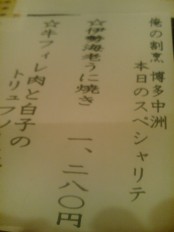 俺の割烹 博多中洲
本日のスペシャリテ
☆伊勢海老うに焼き
一、二八〇円
☆牛フィレ肉と白子の
トリュフ